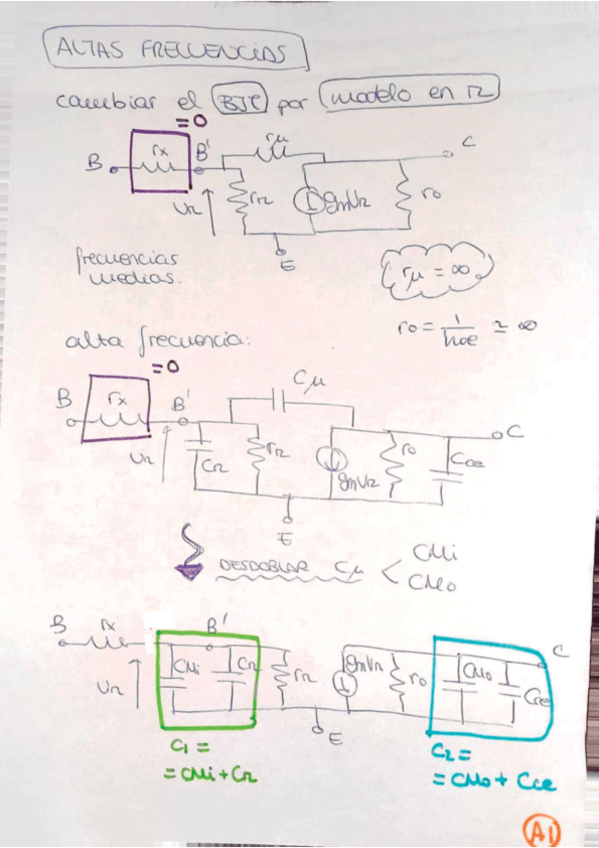 ALTAS FRECUENCIAS
cambiar el BJT por modelo en π
=0
rx rμ C
B B'
Uπ rπ gmUπ ro
E
frecuencias
medias.
rμ = ∞
ro = 1/hoe ≃ ∞
alta frecuencia:
=0
Cμ
B rx B' C
Uπ Cπ rπ gmUπ ro Cce
E
DESDOBLAR Cμ < CMi
CMo
B rx B' C
Uπ CMi Cπ rπ gmUπ ro CMo Cce
E
C1 =
= CMi + Cπ
C2 =
= CMo + Cce
A1